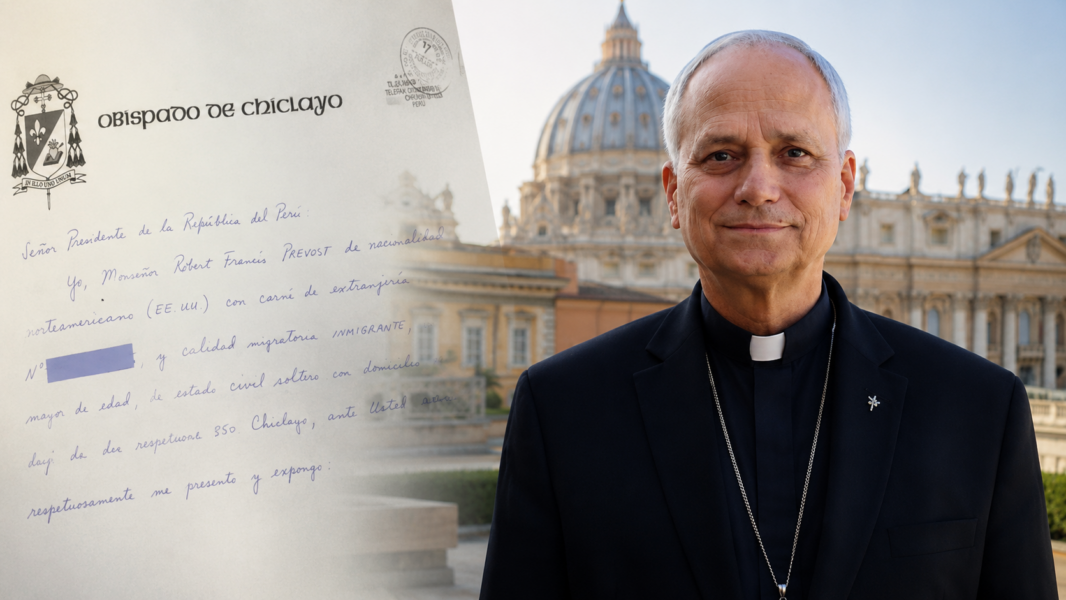 OBISPADO DE CHICLAYO
IN ILLO UNO UNUM
17
PERÚ
Señor Presidente de la República del Perú:
Yo, Monseñor Robert Francis PREVOST de nacionalidad
norteamericano (EE.UU.) con carné de extranjería
N°, y calidad migratoria INMIGRANTE,
mayor de edad, de estado civil soltero con domicilio
350 Chiclayo, ante Usted
respetuosamente me presento y expongo: